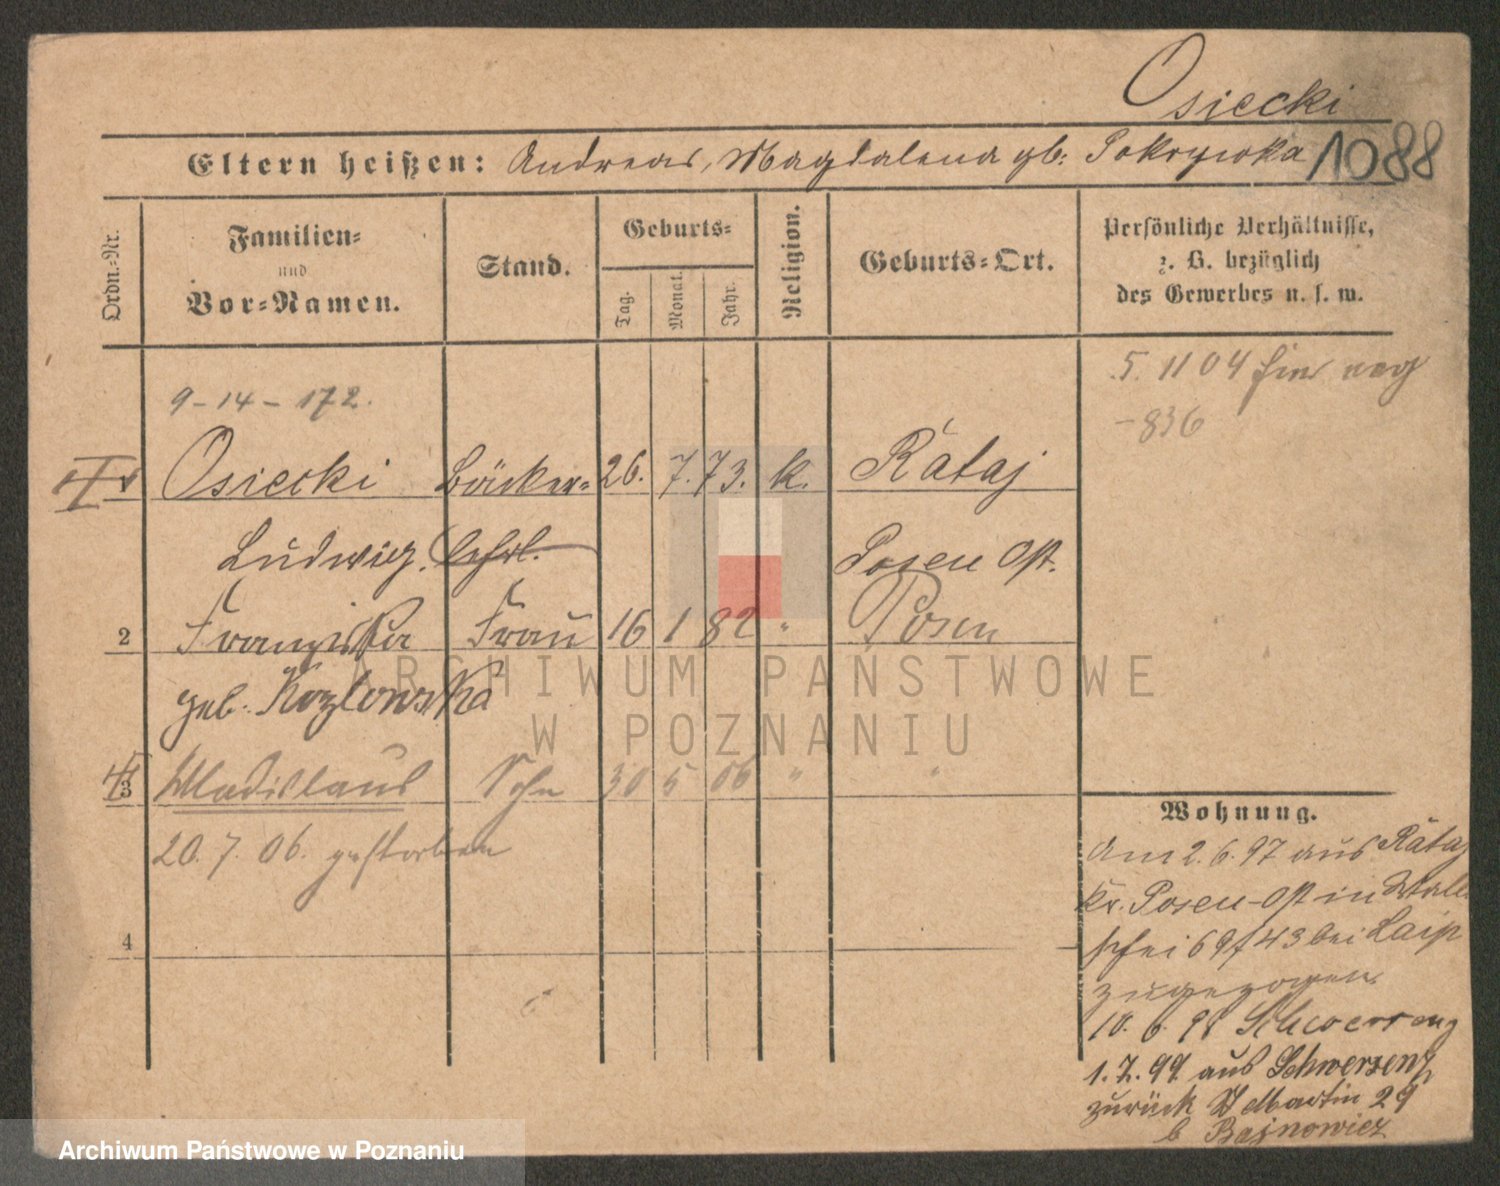 Osiecki
Eltern heißen: Andreas, Magdalena gb: Pokrywka 1088
Ordn.-Nr.
Familien-
und
Vor-Namen.
Stand.
Geburts-
Tag.
Monat.
Jahr.
Religion.
Geburts-Ort.
Persönliche Verhältnisse,
z. B. bezüglich
des Gewerbes u. s. w.
5. 11 04
-836
9-14-172.
Osiecki Bäcker- 26. 7. 73. k. Rataj
Ludwig. lehrl. Posen Ost.
2 Franziska Frau 16 1 82 " Posen
geb. Kozlowska
3 Wladislaus Sohn 30 5 06 " "
20. 7. 06. gestorben
4
Wohnung.
Am 2. 6. 97 aus Rataj
Kr. Posen-Ost in Wall
schei 69/43 bei
zugezogen.
10. 6. 98 Schwersenz
1. 7. 99 aus Schwersenz
zurück St Martin 29
b Bajnowicz
ARCHIWUM PAŃSTWOWE
W POZNANIU
Archiwum Państwowe w Poznaniu